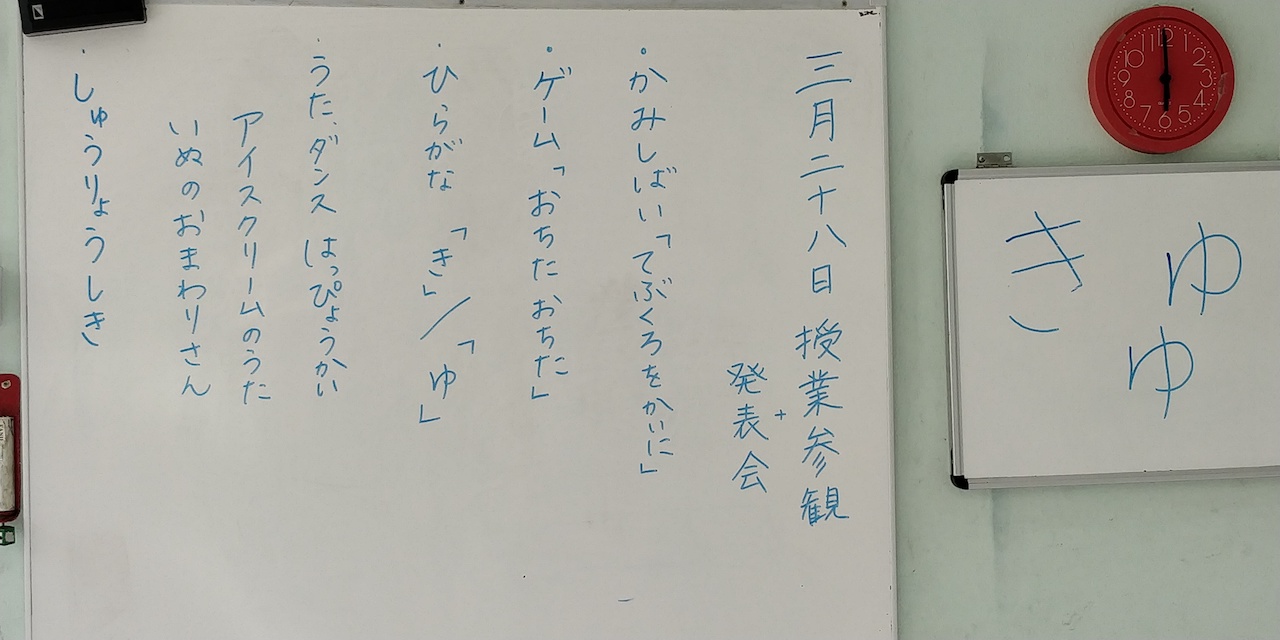 三月二十八日 授業参観
+
発表会
・かみしばい「てぶくろをかいに」
・ゲーム「おちたおちた」
・ひらがな 「き」/「ゆ」
・うた、ダンス はっぴょうかい
アイスクリームのうた
いぬのおまわりさん
・しゅうりょうしき
ゆ
き
ゆ
12
1
2
3
4
5
6
7
8
9
10
11